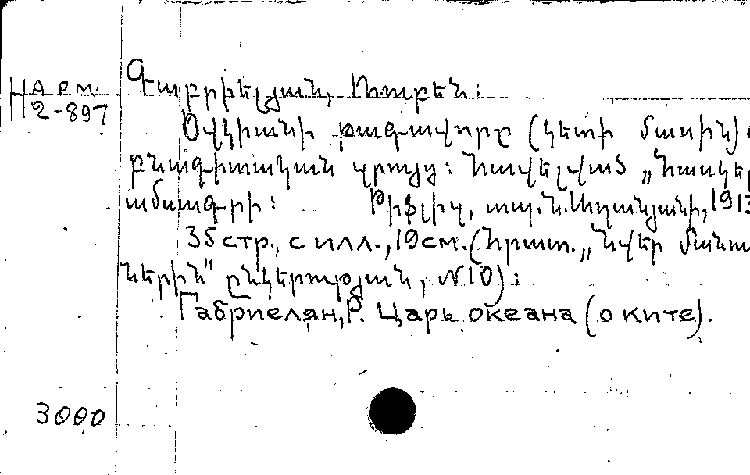 Н АРМ.
2-897
Գաբրիելյան, Ռուբեն:
Օվկիանի թագավորը (կետի մասին)
բնագիտական զրույց: Հավելված „Հասկեր
ամսագրի: Թիֆլիս, տպ. Ն. Աղանյանի, 1913
35 стр., с илл., 19 см. (Հրատ. „Նվեր մանու
ներին" ընկերության, № 10):
Габриелян, Р. Царь океана (о ките).
3000